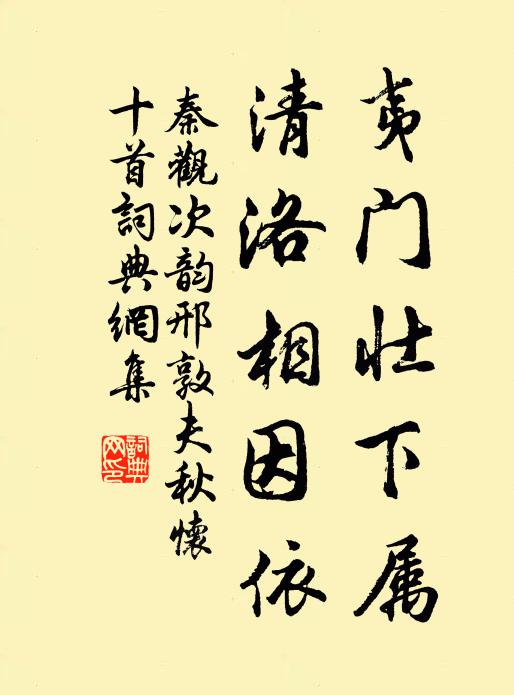 夷门壮下属
清洛相因依
秦觀次韵邢敦夫秋懷
十首詞典網集
詞典网印